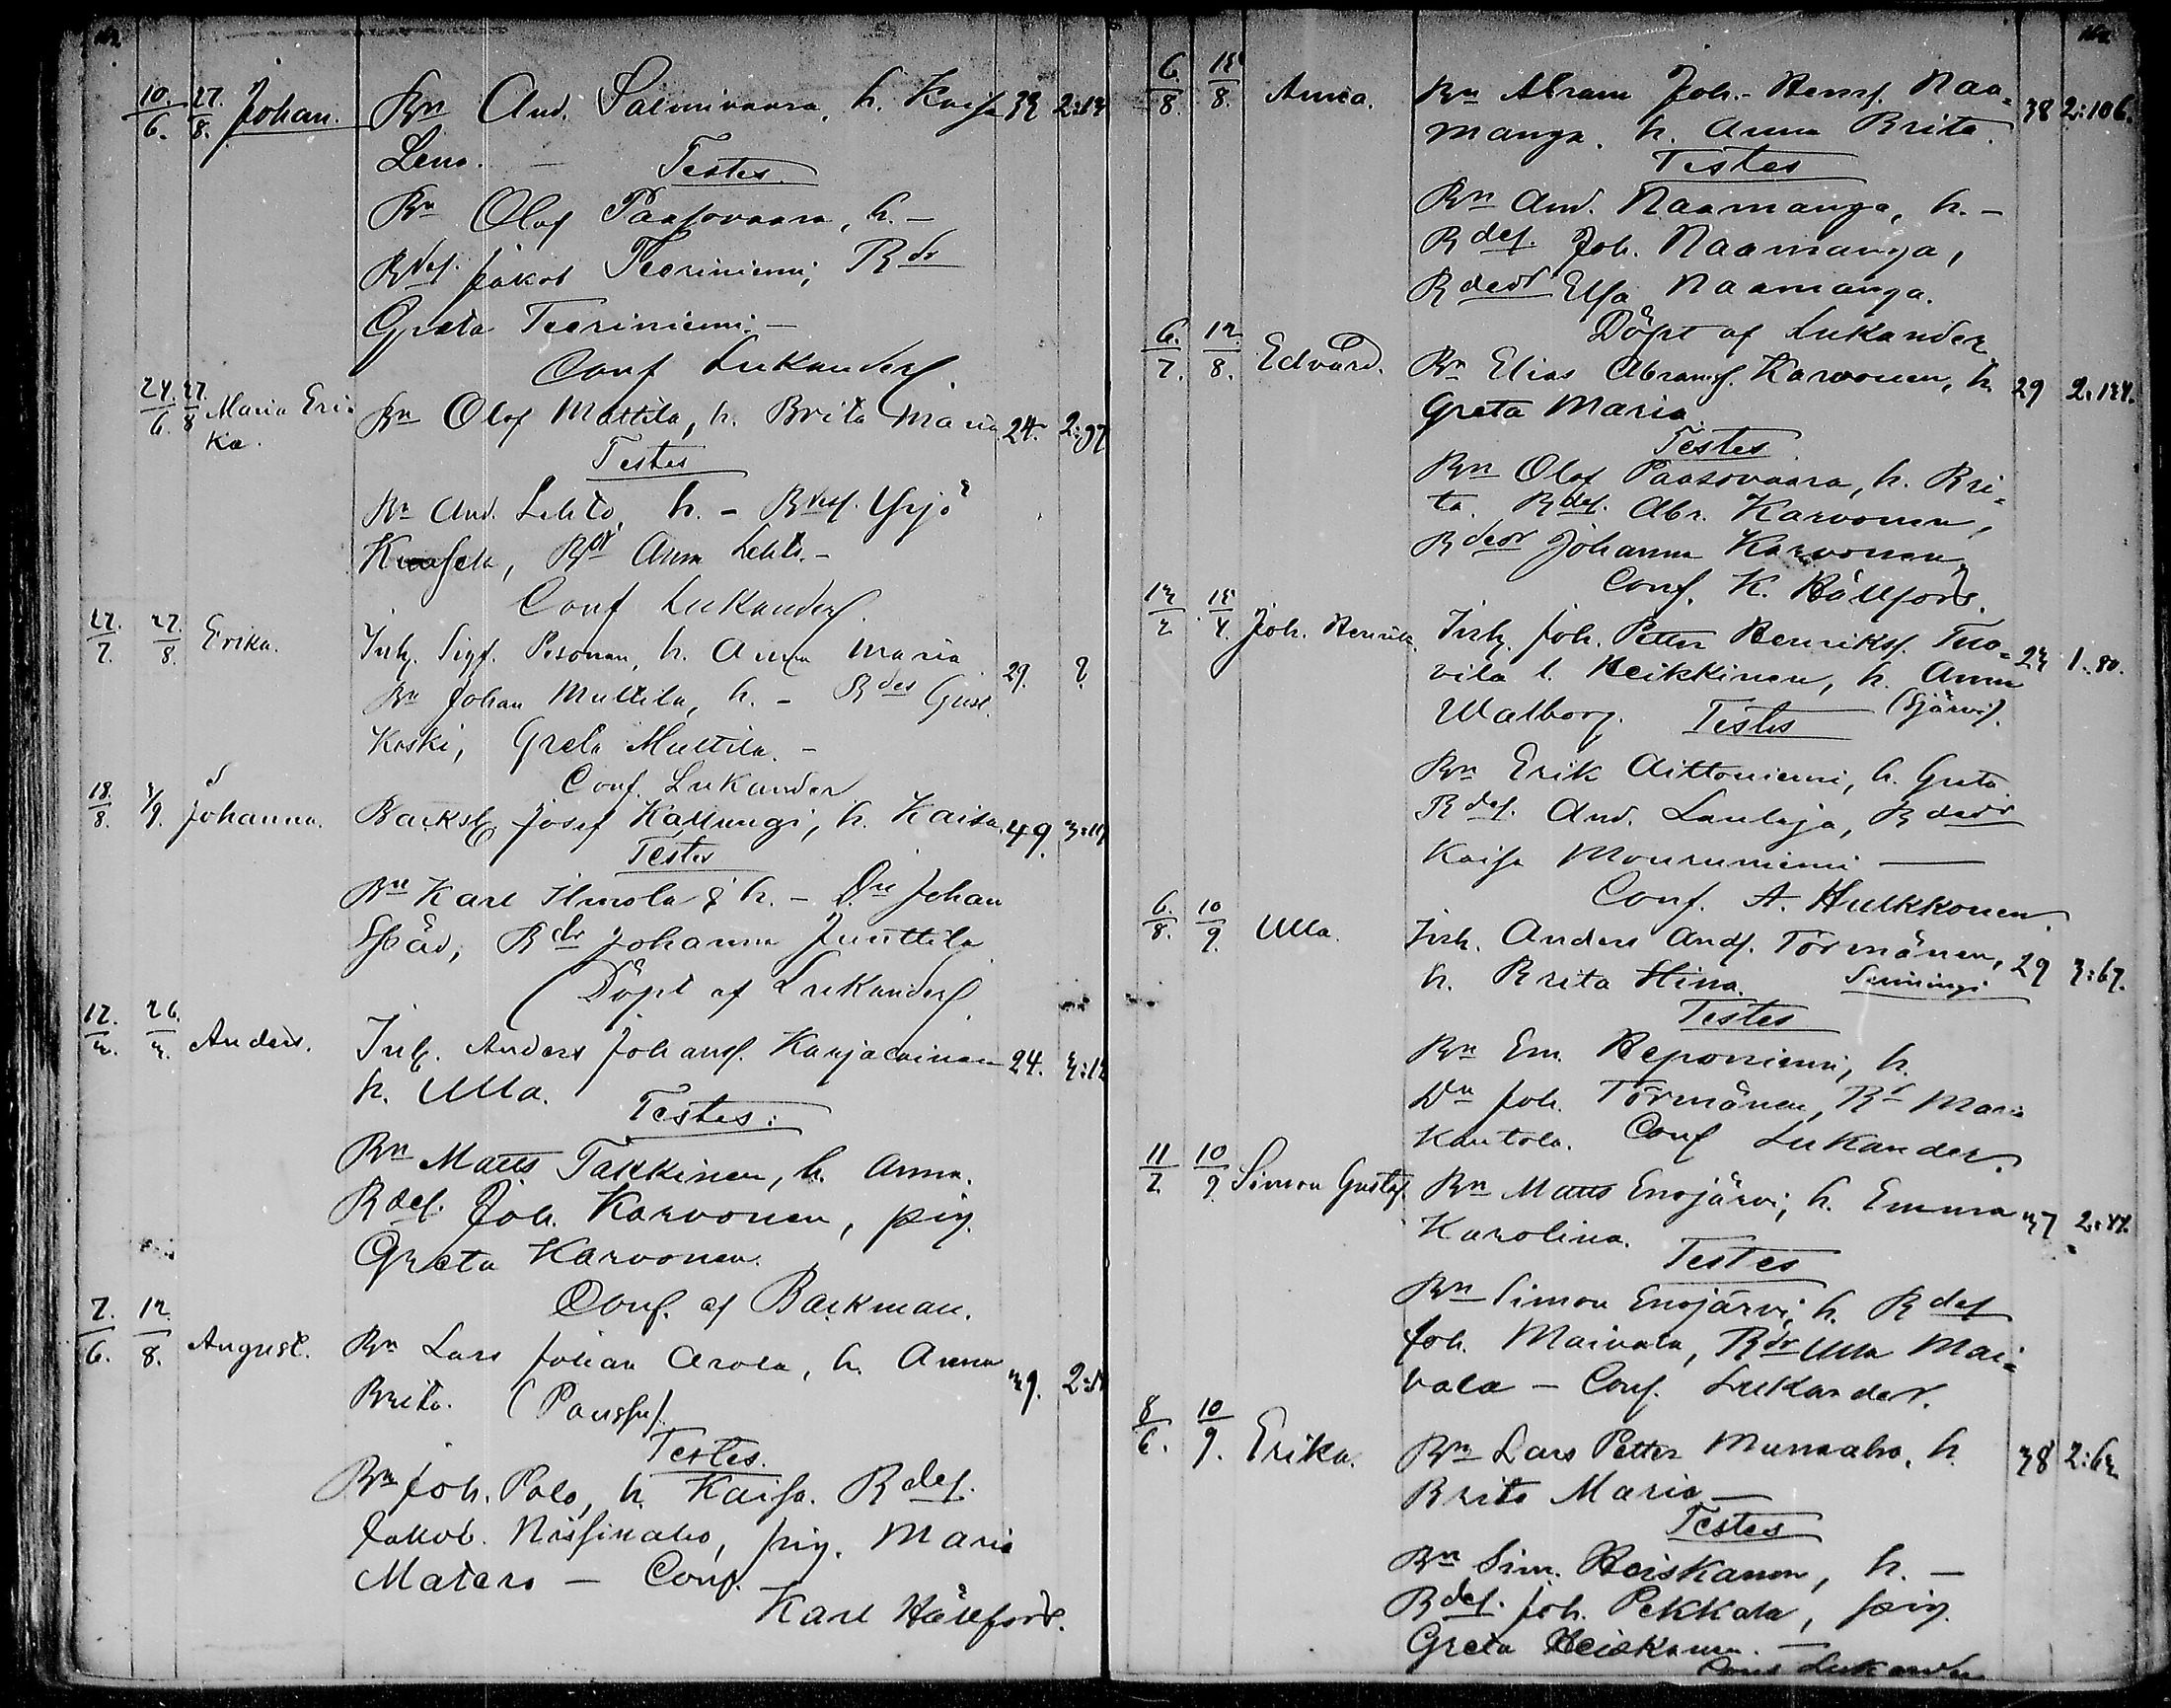 10./6. 27./8. Johan. Bn And. Salmivaara, h. Kaisa 33 2:13
Lena. — Testes.
Bn Olof Paasovaara, h. —
Bdes. Jakob Teeriniemi, Bdr
Greta Teeriniemi. —
Conf Lukander.
24./6. 27./8 Maria Eri- Bn Olof Mattila, h. Brita Maria 24. 2:97
ka.
Testes
Bn And. Lehto, h. — Bdes. Yrjö
Bdr Anna Lehto. —
Conf Lukander.
27./7. 27./8. Erika. Inh. Sigf. Pesonen, h. Anna Maria 29. ?
Bn Johan Multila, h. — Bdes Gust.
Koski, Greta Multila. —
Conf. Lukander
18./8. 3/9. Johanna. Backst. Josef Kallungi, h. Kaisa. 49. 3:119
Testes
Bn Karl Ilmola & h. — Dn Johan
Späd, Bdr Johanna Junttila
Döpt af Lukander.
12./3. 26./3. Anders. Inh. Anders Johans. Karjalainen 24. 3:12
h. Ulla.
Testes:
Bn Matts Takkinen, h. Anna.
Bdes. Joh. Karvonen, pig.
Greta Karvonen.
Conf. af Backman.
7./6. 12./8. August. Bn Lars Johan Arola, h. Anna 39. 2:
Brita. (Paussu).
Testes.
Bn Joh. Palo, h. Kaisa. Bdes.
Jakob. Nissinaho, pig. Maria
Matero — Conf.
Karl Hällfors.
6./8. 15/8. Anna. Bn Abram Joh.-Henr. Naa= 38 2:106.
manga. h. Anna Brita.
Testes
Bn And. Naamanga, h. —
Bdes. Joh. Naamanga,
Bdedr Elsa Naamanga.
Döpt af Lukander
6./7. 12./8. Edvard. Bn Elias Abrams. Karvonen, h. 29 2.134.
Greta Maria.
Testes
Bn Olof Paasovaara, h. Bri=
ta. Bdes. Abr. Karvonen,
Bdedr Johanna Karvonen.
Conf. K. Hällfors.
13/2 15/4. Joh. Henrik. Inh. Joh. Petter Henriks. Tuo= 23 1.80.
vila l. Heikkinen, h. Anna
Walborg. Testes (Sjärvi).
Bn Erik Aittoniemi, h. Greta
Bdes. And. Lantaja, Bdedr
Kaisa Mourumiemi —
Conf. A. Hulkkonen.
6./8. 10/9. Ulla. Inh. Anders Ands. Törmänen, 29 3:67.
h. Brita Stina. Simingi
Testes
Bn Em. Reponiemi, h.
Dn Joh. Törmänen, Bdr Maria
Kantola. Conf Lukander.
11/7. 10/9. Simon Gustaf. Bn Matts Enojärvi, h. Emma 37 2:44.
Karolina.
Testes
Bn Simon Enojärvi, h. Bdes
Joh. Maivala, Bdr Ulla Mai=
vala — Conf. Lukander.
8/6. 10/9. Erika. Bn Lars Petter Mursaho, h. 38 2:63
Brita Maria —
Testes
Bn Sim. Heiskanen, h. —
Bdes. Joh. Pekkala, pig.
Greta Heiskanen. —
Conf Lukander